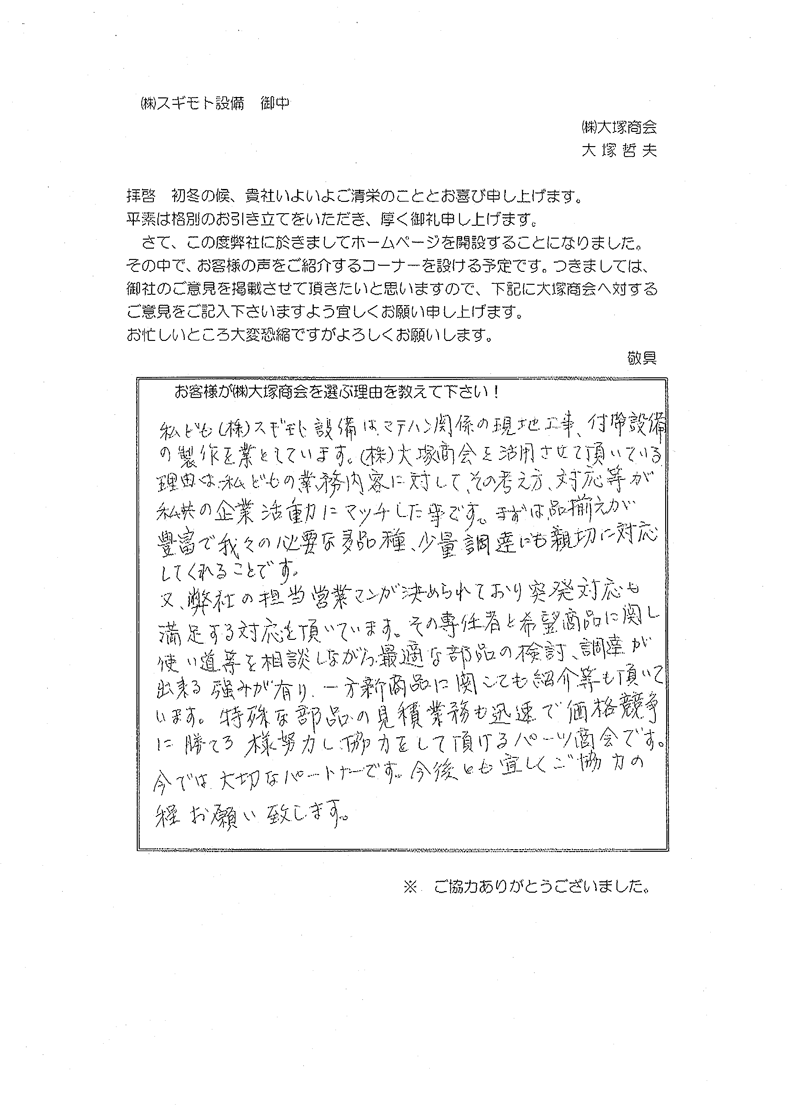 ㈱スギモト設備　御中
㈱大塚商会
大 塚 哲 夫
拝啓　初冬の候、貴社いよいよご清栄のこととお喜び申し上げます。
平素は格別のお引き立てをいただき、厚く御礼申し上げます。
　さて、この度弊社に於きましてホームページを開設することになりました。
その中で、お客様の声をご紹介するコーナーを設ける予定です。つきましては、
御社のご意見を掲載させて頂きたいと思いますので、下記に大塚商会へ対する
ご意見をご記入下さいますよう宜しくお願い申し上げます。
お忙しいところ大変恐縮ですがよろしくお願いします。
敬具
お客様が㈱大塚商会を選ぶ理由を教えて下さい！
私ども(株)スギモト設備は、マテハン関係の現地工事、付帯設備
の製作を業としています。(株)大塚商会を活用させて頂いている
理由は、私どもの業務内容に対して、その考え方、対応等が
私共の企業活動にマッチした事です。まずは品揃えが
豊富で我々の必要な多品種、少量調達にも親切に対応
してくれることです。
又、弊社の担当営業マンが決められており突発対応も
満足する対応を頂いています。その専任者と希望商品に関し
使い道等を相談しながら、最適な部品の検討、調達が
出来る強みが有り、一方新商品に関しても紹介等も頂いて
います。特殊な部品の見積業務も迅速で価格競争
に勝てる様努力し、協力をして頂けるパーツ商会です。
今では大切なパートナーです。今後とも宜しくご協力の
程お願い致します。
※　ご協力ありがとうございました。